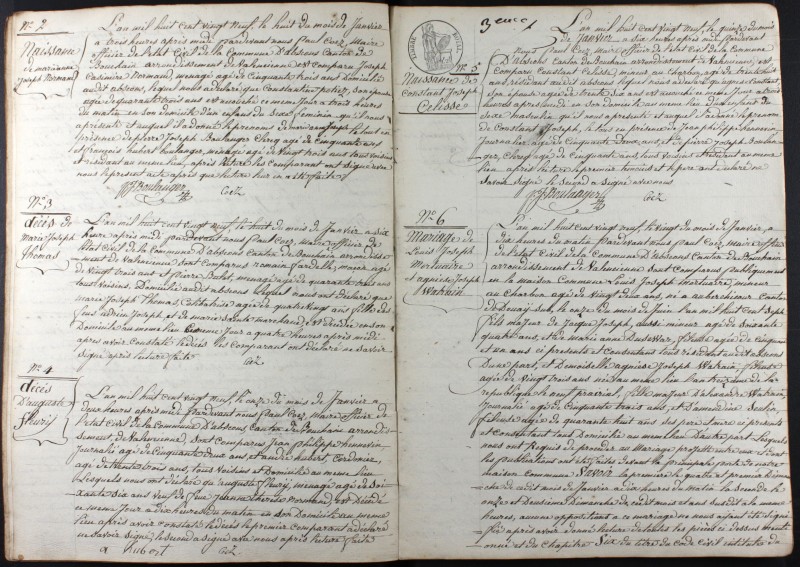 N° 2
Naissance
de marianne
joseph Normand
L'an mil huit cent vingt neuf, le huit du mois de Janvier
à trois heures après midi pardevant nous Paul Coez, Maire
officier de l'état Civil de la Commune d'abscons Canton de
Bouchain arrondissement de Valenciennes est comparu Joseph
Casimire Normand, menagé agé de Cinquante trois ans Domicilié
audit abscons, lequel nous a declaré que Constantin
agée de quarante trois ans est accouché ce meme Jour à trois heures
du matin en son domicile d'un enfant du Sexe feminin, qu'il nous a
presenté et auquel il a donné le prenoms de marianne Joseph le tout en
presence de pierre Joseph Boulanger Clerq agé de cinquante ans
et françois hubert boulanger, menagé agé de vingt trois ans tous voisins
et residant au meme lieu, après lecture les Comparant ont signé avec
nous le present acte après que lecture leur en a été faite
PJ Boulanger
Coez
N° 3
décès de
Marie Joseph
Thomas
L'an mil huit cent vingt neuf, le huit du mois de Janvier à six
heure après midi pardevant nous Paul Coez, Maire officier de
l'état Civil de la Commune D'abscons Canton de Bouchain arrondisse-
ment de Valenciennes sont comparus romain
de vingt trois ans et pierre menagé agé de quarante trois ans
tous voisins Domicilié audit abscons Lesquels nous ont déclaré que
marie Joseph Thomas, Célibataire agée de quatre vingt ans fille de
feus adrien Joseph, et de marie est décédée en son
Domicile au meme lieu ce meme Jour à quatre heures après midi
après avoir Constaté le décès les Comparant ont déclaré ne savoir
signé après lecture faite
Coez
N° 4
décès
D'auguste
fleurij
L'an mil huit cent vingt neuf, le onze du mois de Janvier à
deux heures après midi Pardevant nous Paul Coez, Maire officier de
l'etat Civil de la Commune D'abscons Canton de Bouchain arrondis-
sement, de Valenciennes, sont comparus Jean Philippe hennevin,
Journalié agé de Cinquante deux ans et andré hubert, Cordonié,
agé de trente trois ans, tous voisins et Domicilié au meme lieu
Lesquels nous ont déclaré qu'auguste fleurij, menagé agé de soi-
xante six ans Veuf de feue Jeanne therese Normand est Décédé
ce meme Jour à dix heures du matin en son Domicile au meme
lieu après avoir constaté le décès le premier comparant a déclaré
ne savoir signé, le second a signé avec nous après lecture faite
a hubert Coez
3eme
TIMBRE ROYAL
N° 5
Naissance de
Constant Joseph
Celisse
L'an mil huit cent vingt neuf, le quinze du mois
de Janvier à dix heures après midi Pardevant
nous Paul Coez, Maire officier de l'etat Civil de la Commune
D'abscons Canton de Bouchain, arrondissement de Valenciennes, est
Comparu Constant Celisse, mineur au Charbon, agé de trente huit
ans, residant audit abscons lequel nous a declaré
Son épouse agée de trente six ans est accouchée ce meme Jour à trois
heures après midi en son domicile au meme lieu d'un enfant du
Sexe masculin qu'il nous a presenté et auquel il a donné le prenom
de Constant Joseph, le tous en presence de Jean philippe hennevin
Journalier, agé de Cinquante Deux ans, et de pierre Joseph Boulan-
ger, Clerq agé de cinquante ans, tous Voisins et residant au meme
lieu après lecture le premier temoins et le pere ont declaré ne
savoir Signé le second a Signé avec nous
PJ Boulanger
Coez
N° 6
Mariage de
Louis Joseph
Mortuaire
et agnies Joseph
Watrain
L'an mil huit cent vingt neuf, le vingt du mois de Janvier, à
dix heures du matin Pardevant nous Paul Coez, Maire officier
de l'etat Civil, de la Commune D'abscons Canton de Bouchain
arrondissement de Valenciennes sont Comparus publiquement
en la maison Commune Louis Joseph mortuaire, mineur
au Charbon agé de vingt deux ans, né a auberchicourt Canton
de Douaij sud, le onze du mois de Juin l'an mil huit cent sept,
fils majeur de Jacques Joseph, aussi mineur agé de soixante
quatre ans, et de marie anne fileuse agée de cinquante
et un ans ci presents et Consentans tous residant audit abscons
D'une part, et Demoiselle agnies Joseph Watrain, fileuse
agée de vingt trois ans née au meme lieu l'an treize de la
republique le neuf prairial, fille majeur D'alexandre Watrain,
Journalié agé de Cinquante trois ans, et d'amandine
fileuse agée de quarante huit ans ses pere et mere ci presents
et Consentant tous Domicilié au meme lieu D'autre part, Lesquels
nous ont Requis de proceder au Mariage projetté entre eux et dont
les publications ont été faites devant la principale porte de notre
maison commune Savoir la premiere le quatre et premier Diman-
che du dit mois de Janvier à dix heures du matin la seconde le
onze et Deuxieme Dimanche dudit mois et an susdit à la meme
heures, aucune opposition a ce mariage ne nous ayant été signi-
fié après avoir donné lecture de toutes les pieces ci dessus ment-
ionné et du chapitre Six du titre du code civil intitulé du